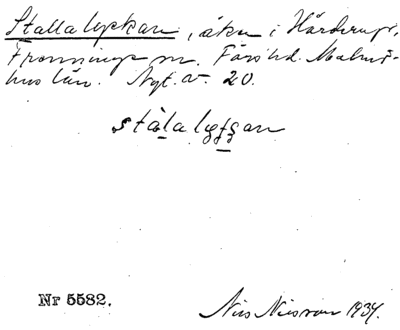 Stallalyckan, åker i Härderup,
Fronninge sn. Färs hd. Malmö-
hus län. Nyt. a. 20.
stàlalyḱḱan
Nr 5582.
Nils Nilsson 1934.